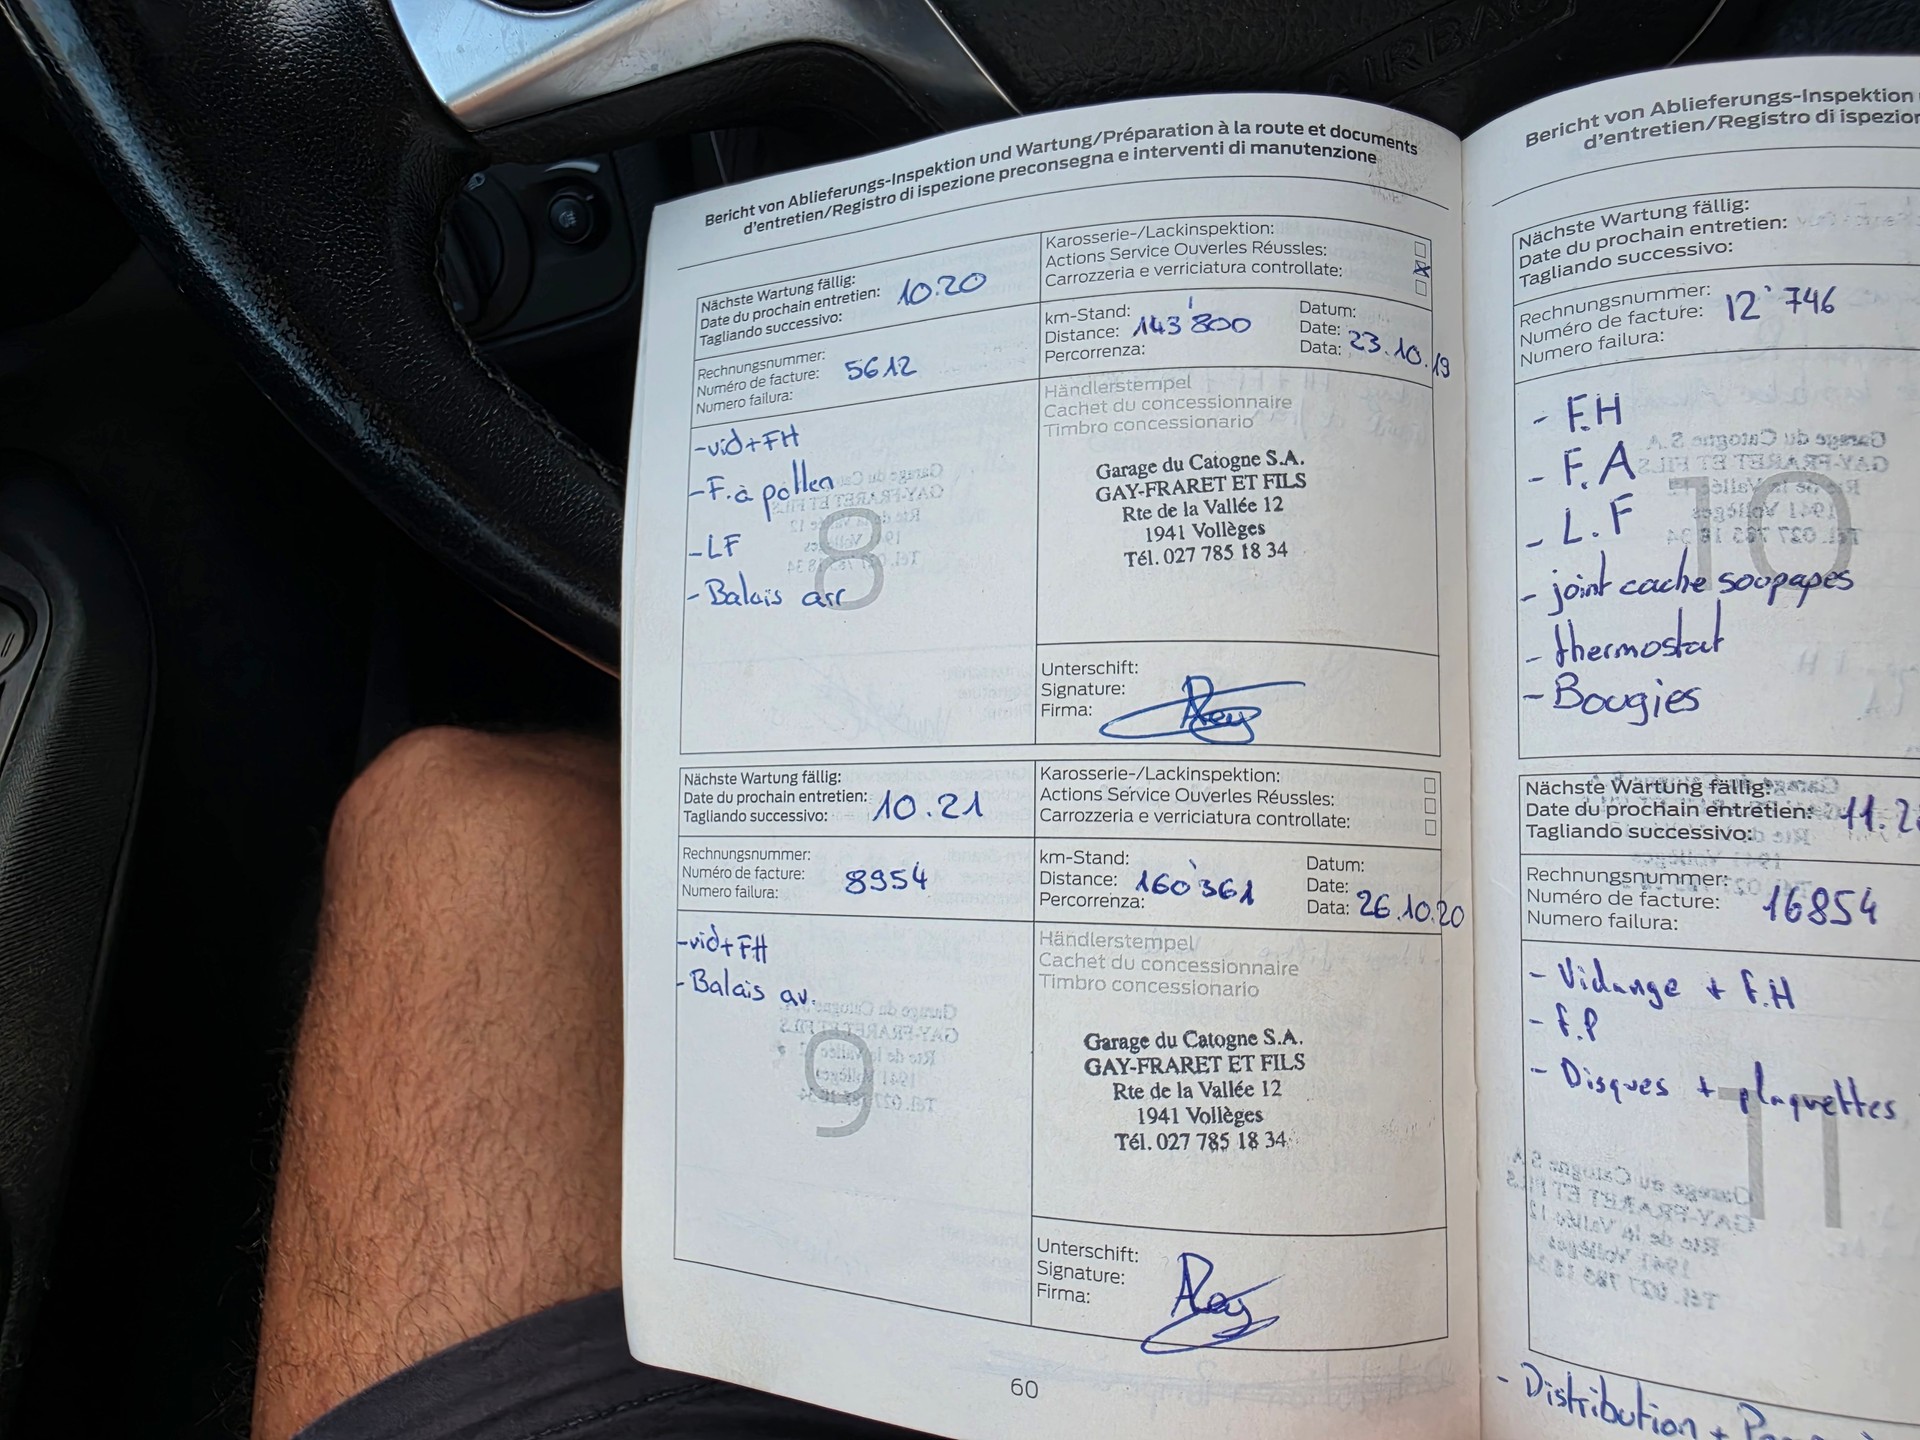 AIRBAG
Bericht von Ablieferungs-Inspektion und Wartung/Préparation à la route et documents
d'entretien/Registro di ispezione preconsegna e interventi di manutenzione
Nächste Wartung fällig:
Date du prochain entretien: 10.20
Tagliando successivo:
Karosserie-/Lackinspektion:
Actions Service Ouverles Réussles:
Carrozzeria e verriciatura controllate:
Rechnungsnummer:
Numéro de facture: 5612
Numero failura:
km-Stand:
Distance: 143'800
Percorrenza:
Datum:
Date:
Data: 23.10.19
- vid + FH
- F. à pollen
- LF
- Balais arr
8
Händlerstempel
Cachet du concessionnaire
Timbro concessionario
Garage du Catogne S.A.
GAY-FRARET ET FILS
Rte de la Vallée 12
1941 Vollèges
Tél. 027 785 18 34
Unterschift:
Signature:
Firma:
Nächste Wartung fällig:
Date du prochain entretien: 10.21
Tagliando successivo:
Karosserie-/Lackinspektion:
Actions Service Ouverles Réussles:
Carrozzeria e verriciatura controllate:
Rechnungsnummer:
Numéro de facture: 8954
Numero failura:
km-Stand:
Distance: 160'361
Percorrenza:
Datum:
Date:
Data: 26.10.20
- vid + FH
- Balais av.
9
Händlerstempel
Cachet du concessionnaire
Timbro concessionario
Garage du Catogne S.A.
GAY-FRARET ET FILS
Rte de la Vallée 12
1941 Vollèges
Tél. 027 785 18 34
Unterschift:
Signature:
Firma:
60
Bericht von Ablieferungs-Inspektion
d'entretien/Registro di
Nächste Wartung fällig:
Date du prochain entretien:
Tagliando successivo:
Rechnungsnummer:
Numéro de facture: 12'746
Numero failura:
- F.H
- F.A
- L.F
- joint cache soupapes
- thermostat
- Bougies
10
Nächste Wartung fällig:
Date du prochain entretien: 11.2
Tagliando successivo:
Rechnungsnummer:
Numéro de facture: 16854
Numero failura:
- Vidange + F.H
- F.P
- Disques + plaquettes
11
- Distribution +